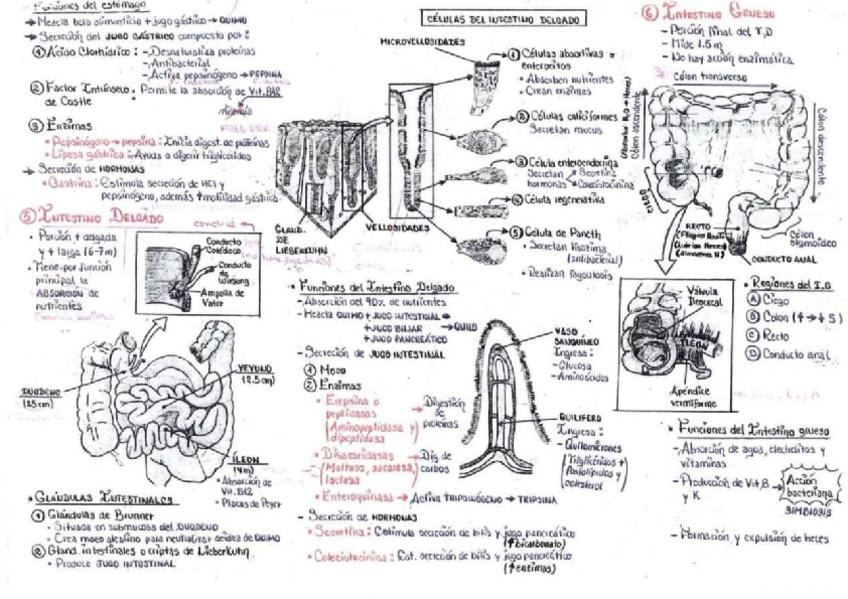 Funciones del estómago
→ Mezcla bolo alimenticio + jugo gástrico → QUIMO
→ Secreción del JUGO GÁSTRICO compuesto por:
① Ácido Clorhídrico: - Desnaturaliza proteínas
- Antibacterial
- Activa pepsinógeno → PEPSINA
② Factor Intrínseco de Castle : Permite la absorción de Vit.B12
Anemia
③ Enzimas
• Pepsinógeno → pepsina : Inicia digest. de proteínas
• Lipasa gástrica : Ayuda a digerir triglicéridos
→ Secreción de HORMONAS
• Gastrina : Estimula secreción de HCl y
pepsinógeno, además ↑ motilidad gástrica
⑤ INTESTINO DELGADO
• Porción + delgada
y + larga (6-7m)
• Tiene por función
principal la
ABSORCIÓN de
nutrientes
Conducto
Colédoco
Conducto
de
Wirsung
Ampolla de
Vater
DUODENO
(25cm)
YEYUNO
(2.5cm)
ÍLEON
(4m)
• Absorción de
Vit.B12
• Placas de Peyer
• GLÁNDULAS INTESTINALES
① Glándulas de Brunner
• Situada en submucosa del DUODENO
• Crea moco alcalino para neutralizar acidez de QUIMO
② Gland. intestinales o criptas de Lieberkuhn
• Produce JUGO INTESTINAL
CÉLULAS DEL INTESTINO DELGADO
MICROVELLOSIDADES
GLAND.
DE
LIEBERKUHN
VELLOSIDADES
① Células absortivas o
enterocitos
• Absorben nutrientes
• Crean enzimas
② Células caliciformes
Secretan mucus
③ Célula enteroendocrina
Secretan hormonas → Secretina
→ Colecistocinina
④ Célula regenerativa
⑤ Célula de Paneth
• Secretan lisozima
(antibacterial)
• Realizan fagocitosis
• Funciones del Intestino Delgado
- Absorción del 90% de nutrientes
- Mezcla QUIMO + JUGO INTESTINAL
+ JUGO BILIAR → QUILO
+ JUGO PANCREÁTICO
- Secreción de JUGO INTESTINAL
① Moco
② Enzimas
• Erepsina o
peptidasas
(Aminopeptidasa y
dipeptidasa)
→ Digestión
de
proteínas
• Disacaridasas
(Maltasa, sacarasa,
lactasa)
→ Dig. de
carbos
• Enteroquinasa → Activa TRIPSINÓGENO → TRIPSINA
- Secreción de HORMONAS
• Secretina : Estimula secreción de bilis y jugo pancreático
(↑ bicarbonato)
• Colecistocinina : Est. secreción de bilis y jugo pancreático
(↑ enzimas)
VASO
SANGUÍNEO
Ingresa :
- Glucosa
- Aminoácidos
QUILÍFERO
Ingresa :
- Quilomicrones
(Triglicéridos +
fosfolípidos y
colesterol)
⑥ INTESTINO GRUESO
- Porción final del T.D
- Mide 1.5 m
- No hay acción enzimática
Cólon transverso
(Absorbe H₂O → Heces)
Cólon ascendente
Colon descendente
CIEGO
RECTO
CONDUCTO ANAL
Cólon
sigmoideo
Válvula
Ileocecal
ILEON
Apéndice
vermiforme
• Regiones del I.G
Ⓐ Ciego
Ⓑ Colon (↑→↓ S)
Ⓒ Recto
Ⓓ Conducto anal
• Funciones del Intestino grueso
- Absorción de agua, electrolitos y
vitaminas
- Producción de Vit. B
y K
→ Acción
bacteriana
- Formación y expulsión de heces